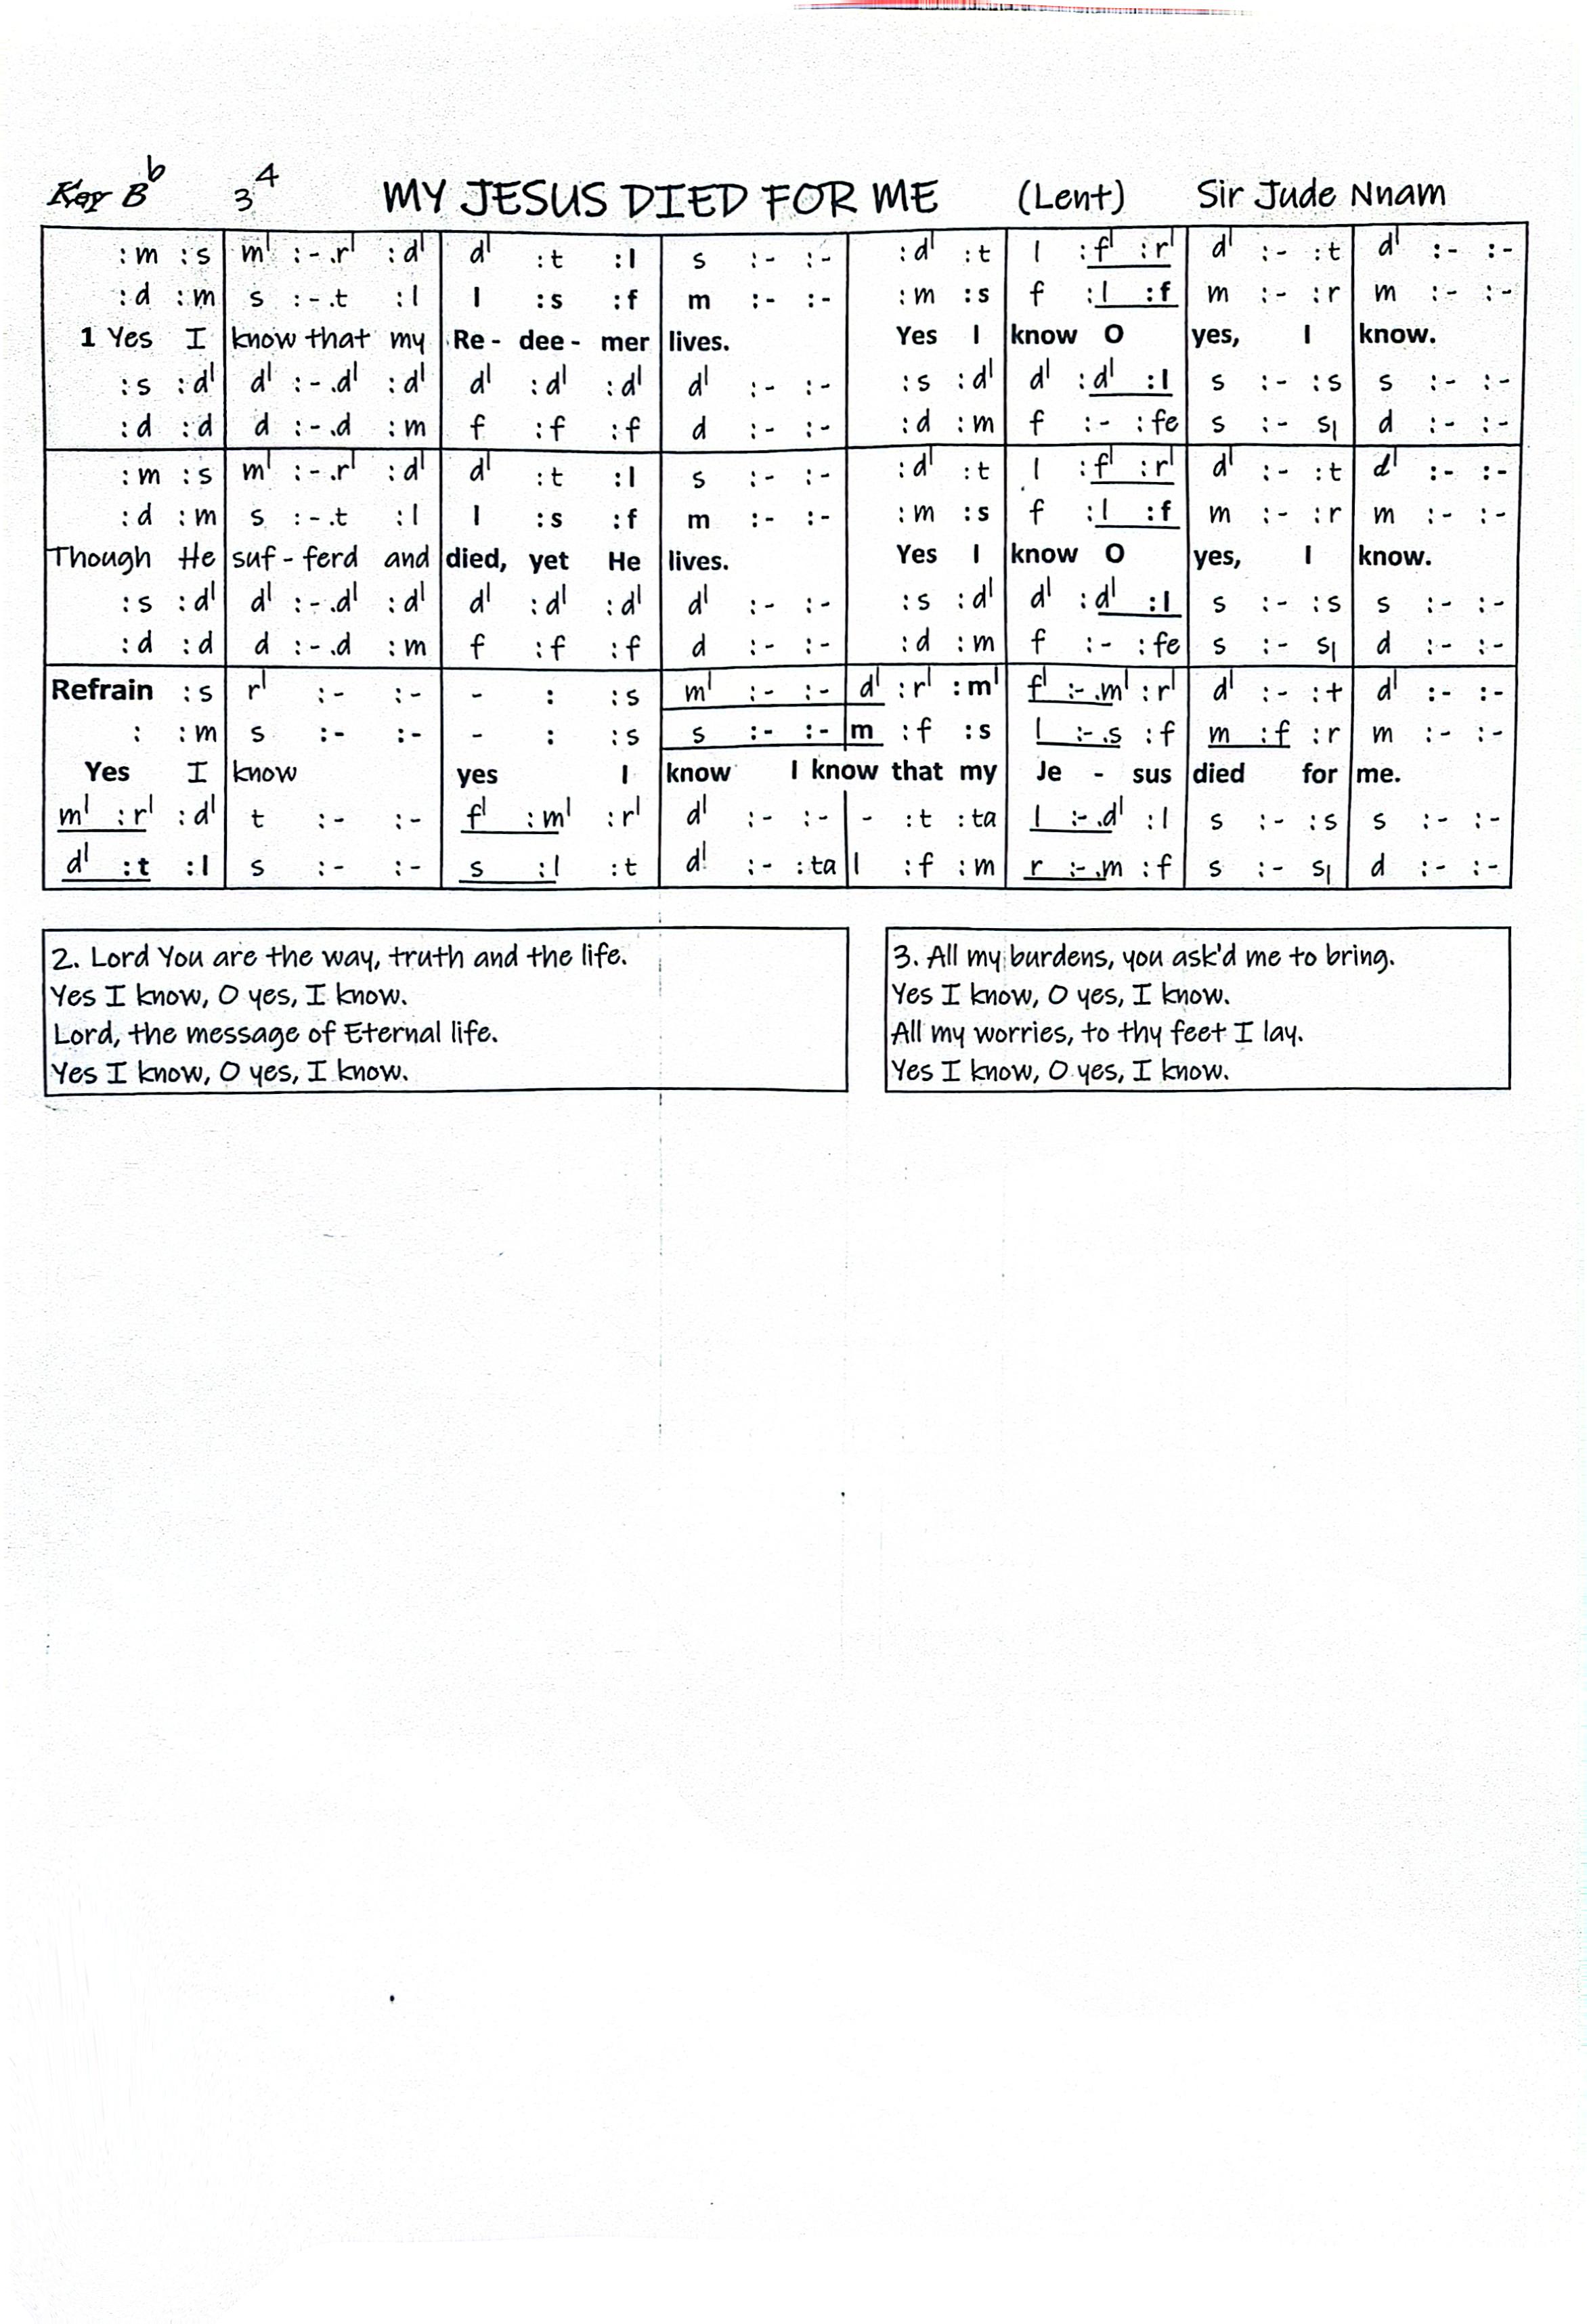 Key B♭ 3 4 MY JESUS DIED FOR ME (Lent) Sir Jude Nnam
:m :s | m' :-.r' :d' | d' :t :l | s :- :- | :d' :t | l :f' :r' | d' :- :t | d' :- :-
:d :m | s :-.t :l | l :s :f | m :- :- | :m :s | f :l :f | m :- :r | m :- :-
1 Yes I | know that my | Re - dee - mer | lives. | Yes I | know O | yes, I | know.
:s :d' | d' :-.d' :d' | d' :d' :d' | d' :- :- | :s :d' | d' :d' :l | s :- :s | s :- :-
:d :d | d :-.d :m | f :f :f | d :- :- | :d :m | f :- :fe | s :- s| | d :- :-
:m :s | m' :-.r' :d' | d' :t :l | s :- :- | :d' :t | l :f' :r' | d' :- :t | d' :- :-
:d :m | s :-.t :l | l :s :f | m :- :- | :m :s | f :l :f | m :- :r | m :- :-
Though He | suf - ferd and | died, yet He | lives. | Yes I | know O | yes, I | know.
:s :d' | d' :-.d' :d' | d' :d' :d' | d' :- :- | :s :d' | d' :d' :l | s :- :s | s :- :-
:d :d | d :-.d :m | f :f :f | d :- :- | :d :m | f :- :fe | s :- s| | d :- :-
Refrain :s | r' :- :- | - : :s | m' :- :- | d' :r' :m' | f' :-.m' :r' | d' :- :t | d' :- :-
: :m | s :- :- | - : :s | s :- :- | m :f :s | l :-.s :f | m :f :r | m :- :-
Yes I | know | yes I | know I know that my | Je - sus | died for | me.
m' :r' :d' | t :- :- | f' :m' :r' | d' :- :- | - :t :ta | l :-.d' :l | s :- :s | s :- :-
d' :t :l | s :- :- | s :l :t | d' :- :ta | l :f :m | r :-.m :f | s :- s| | d :- :-
2. Lord You are the way, truth and the life.
Yes I know, O yes, I know.
Lord, the message of Eternal life.
Yes I know, O yes, I know.
3. All my burdens, you ask'd me to bring.
Yes I know, O yes, I know.
All my worries, to thy feet I lay.
Yes I know, O yes, I know.